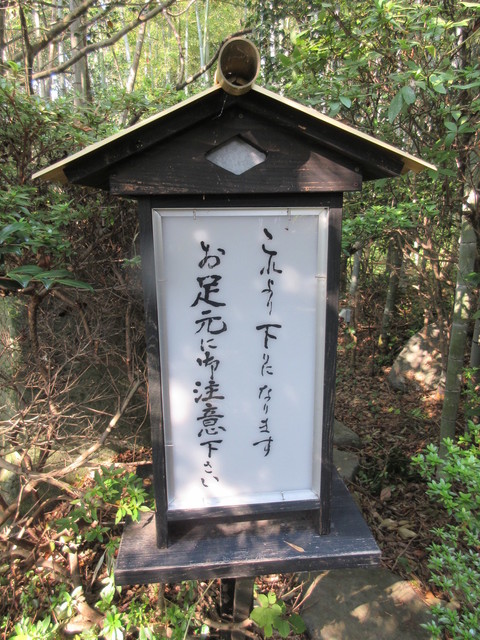 これより下りになります
お足元に御注意下さい